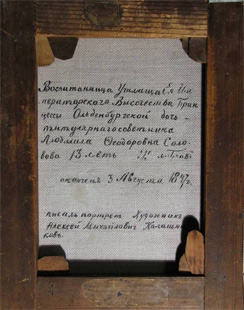 Воспитаница Училища Ея Им
ператорскаго Высочества Прин
цессы Ольденбургской дочь
титулярнаго советника
Людмила Феодоровна Соло
вова 13 летъ
окончен 3 Августа 18
писалъ портрет Художникъ
Алексей Михайлович Калашни
ковъ.